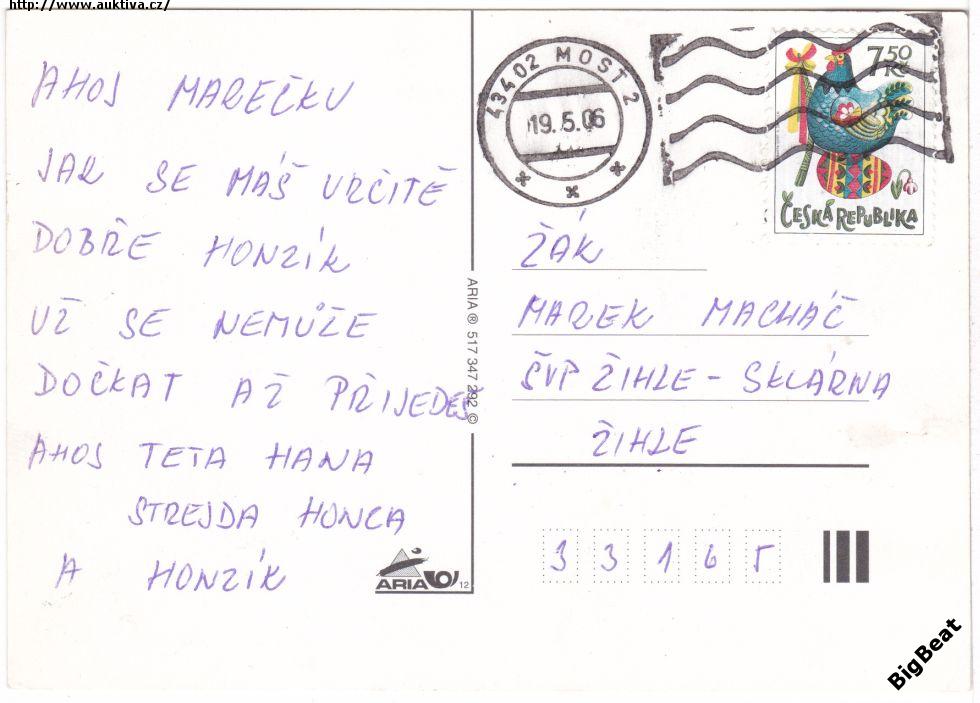 http://www.auktiva.cz/
AHOJ MAREČKU
JAK SE MÁŠ URČITĚ
DOBŘE HONZÍK
UŽ SE NEMŮŽE
DOČKAT AŽ PŘIJEDEŠ
AHOJ TETA HANA
STREJDA HONCA
A HONZÍK
43402 MOST 2
19.5.06
7,50 Kč
ČESKÁ REPUBLIKA
ARIA ® 517 347 292 ©
ŽÁK
MAREK MACHÁČ
ŠVP ŽIHLE - SKLÁRNA
ŽIHLE
33165
ARIA
12
BigBeat